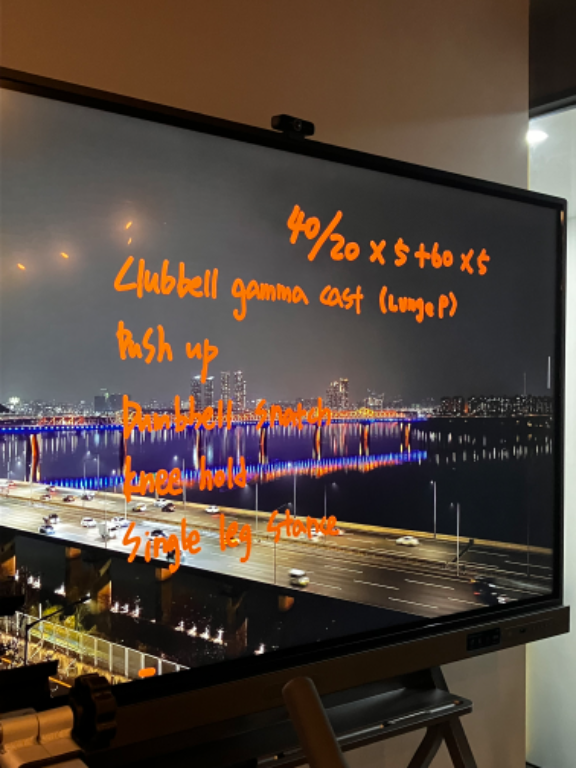 40/20 x 5 + 60 x 5
Clubbell gamma cast (Lunge P)
Push up
Dumbbell snatch
knee hold
Single leg stance